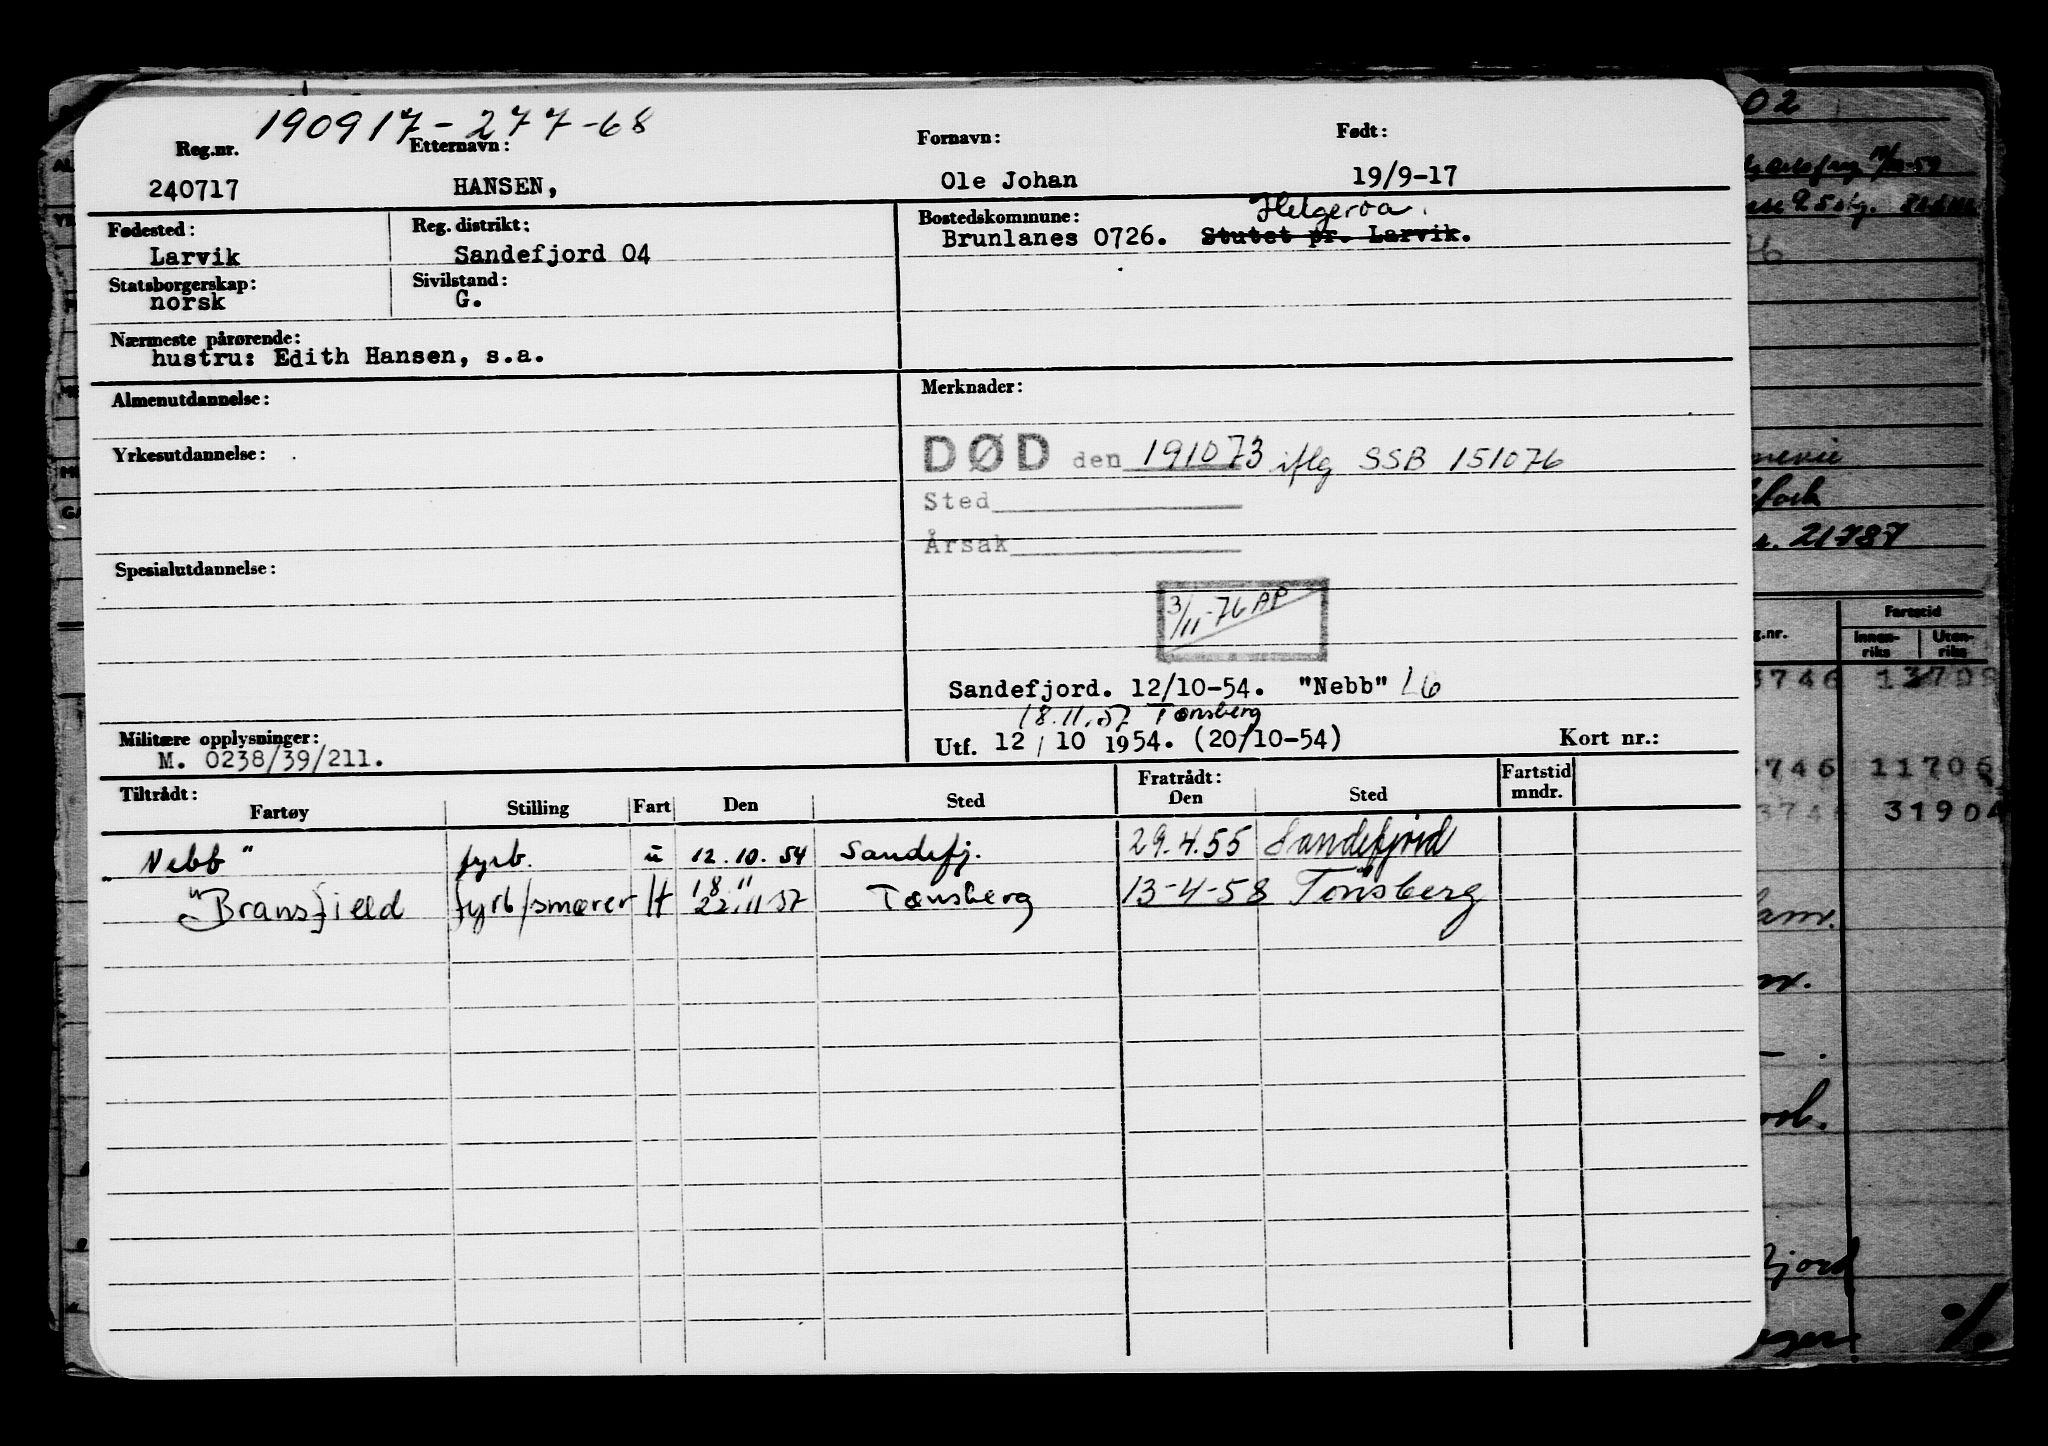 190917-277-68
Reg.nr. Etternavn: Fornavn: Født:
240717 HANSEN, Ole Johan 19/9-17
Fødested: Reg. distrikt: Bostedskommune: Helgeroa.
Larvik Sandefjord 04 Brunlanes 0726. Stutet pr. Larvik.
Statsborgerskap: Sivilstand:
norsk G.
Nærmeste pårørende:
hustru: Edith Hansen, s.a.
Almenutdannelse: Merknader:
Yrkesutdannelse: DØD den 191073 iflg SSB 151076
Sted
Årsak
Spesialutdannelse:
3/11-76 AP
Sandefjord. 12/10-54. "Nebb" L6
18.11.57 Tønsberg
Militære opplysninger: Utf. 12/10 1954. (20/10-54) Kort nr.:
M. 0238/39/211.
Tiltrådt: Fratrådt: Fartstid
Fartøy Stilling Fart Den Sted Den Sted mndr.
"Nebb" fyrb. u 12.10.54 Sandefj. 29.4.55 Sandefjord
18 "
"Bransfield" fyrb/smører H 22.11.57 Tønsberg 13-4-58 Tønsberg
02
21787
Fartstid
g.nr. Innen-riks Uten-riks
3746 13709
3746 11706
3746 31904